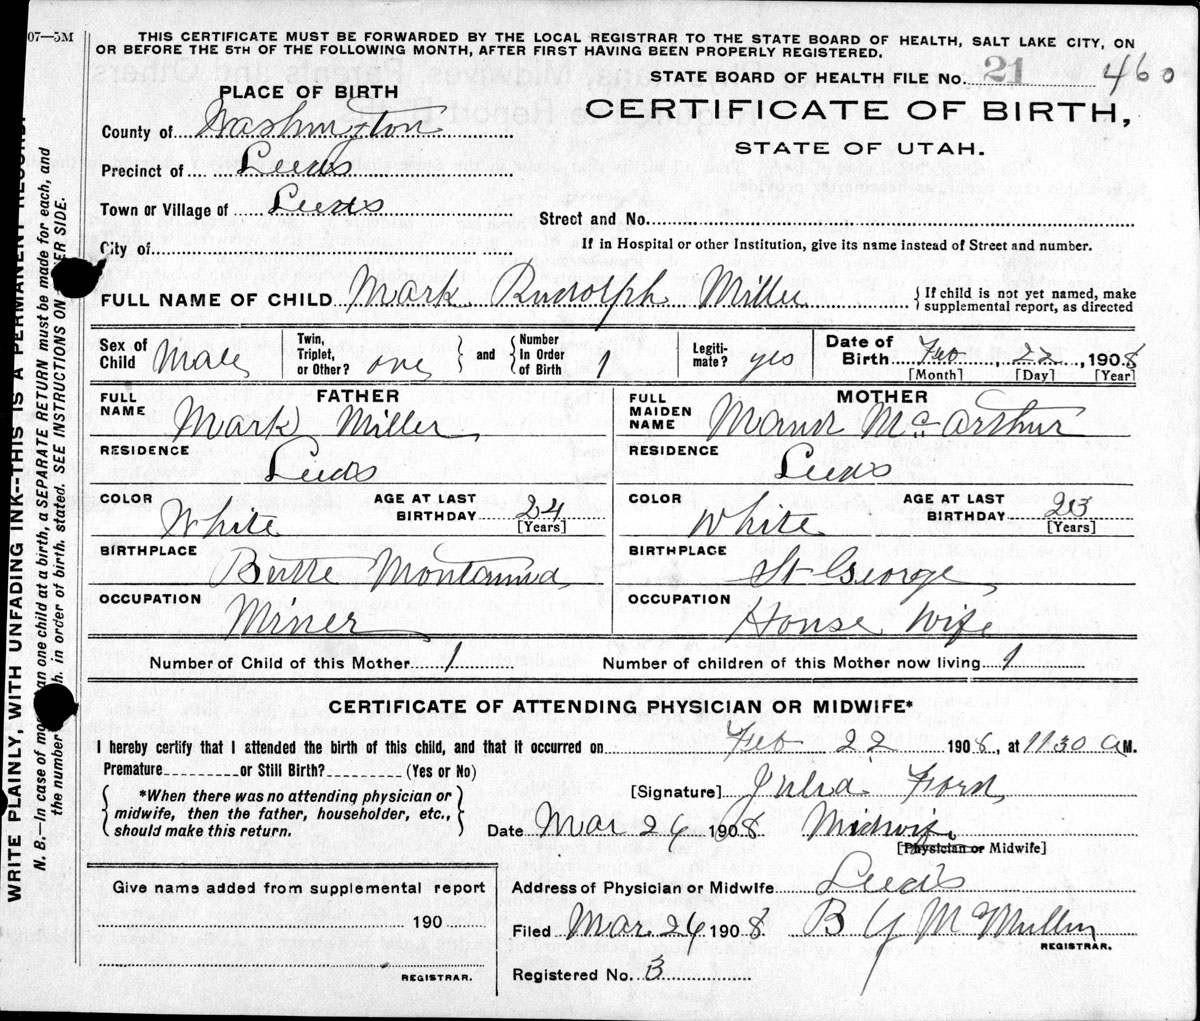 07—5M
THIS CERTIFICATE MUST BE FORWARDED BY THE LOCAL REGISTRAR TO THE STATE BOARD OF HEALTH, SALT LAKE CITY, ON
OR BEFORE THE 5TH OF THE FOLLOWING MONTH, AFTER FIRST HAVING BEEN PROPERLY REGISTERED.
STATE BOARD OF HEALTH FILE No. 21 460
PLACE OF BIRTH
CERTIFICATE OF BIRTH,
STATE OF UTAH.
County of Washington
Precinct of Leeds
Town or Village of Leeds
Street and No.
City of
If in Hospital or other Institution, give its name instead of Street and number.
FULL NAME OF CHILD Mark Rudolph Miller { If child is not yet named, make
supplemental report, as directed
Sex of Child Male Twin, Triplet, or Other? one } and { Number In Order of Birth 1 Legiti-mate? yes Date of Birth Feb 22, 1908
[Month] [Day] [Year]
FATHER
MOTHER
FULL NAME Mark Miller
FULL MAIDEN NAME Maud McArthur
RESIDENCE Leeds
RESIDENCE Leeds
COLOR White AGE AT LAST BIRTHDAY 24 [Years]
COLOR White AGE AT LAST BIRTHDAY 23 [Years]
BIRTHPLACE Butte Montanna
BIRTHPLACE St George
OCCUPATION Miner
OCCUPATION House Wife
Number of Child of this Mother 1 Number of children of this Mother now living 1
CERTIFICATE OF ATTENDING PHYSICIAN OR MIDWIFE*
I hereby certify that I attended the birth of this child, and that it occurred on Feb 22 1908, at 1130 a M.
Premature or Still Birth? (Yes or No)
[Signature] Julia Ford
{ *When there was no attending physician or
midwife, then the father, householder, etc.,
should make this return. }
Date Mar 26 1908 Midwife
[Physician or Midwife]
Give name added from supplemental report
190
REGISTRAR.
Address of Physician or Midwife Leeds
Filed Mar. 26 1908 B Y McMullin
REGISTRAR.
Registered No. 3
WRITE PLAINLY, WITH UNFADING INK--THIS IS A PERMANENT RECORD.
N. B.—In case of more than one child at a birth, a SEPARATE RETURN must be made for each, and
the number in order of birth. stated. SEE INSTRUCTIONS ON SIDE.